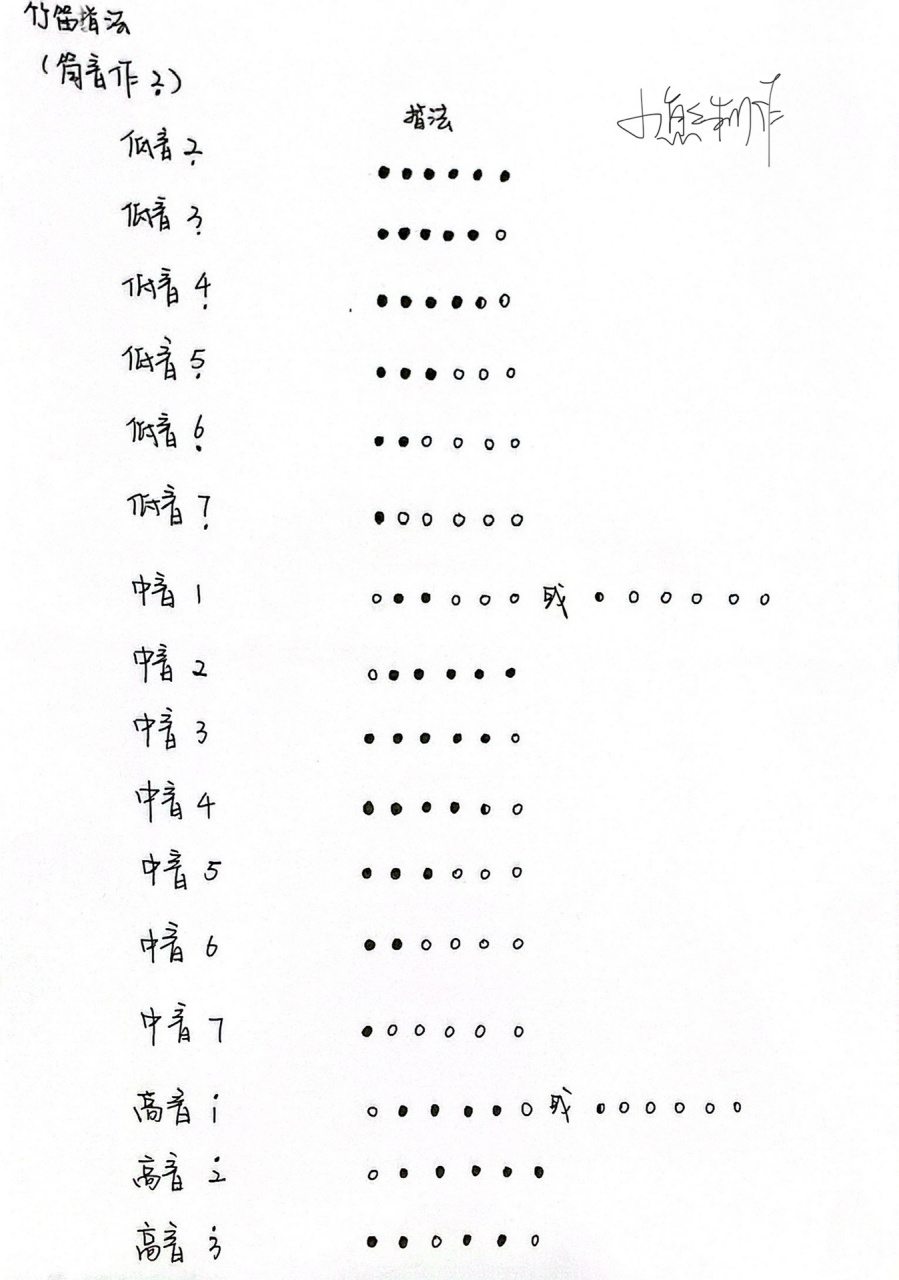 竹笛指法
（筒音作2̣）
指法
小熊制作
低音2̣ ●●●●●●
低音3̣ ●●●●●○
低音4̣ ●●●●◐○
低音5̣ ●●●○○○
低音6̣ ●●○○○○
低音7̣ ●○○○○○
中音1 ○●●○○○或◐○○○○○
中音2 ○●●●●●
中音3 ●●●●●○
中音4 ●●●●◐○
中音5 ●●●○○○
中音6 ●●○○○○
中音7 ●○○○○○
高音1̇ ○●●●●○或◐○○○○○
高音2̇ ○●●●●●
高音3̇ ●●○●●○